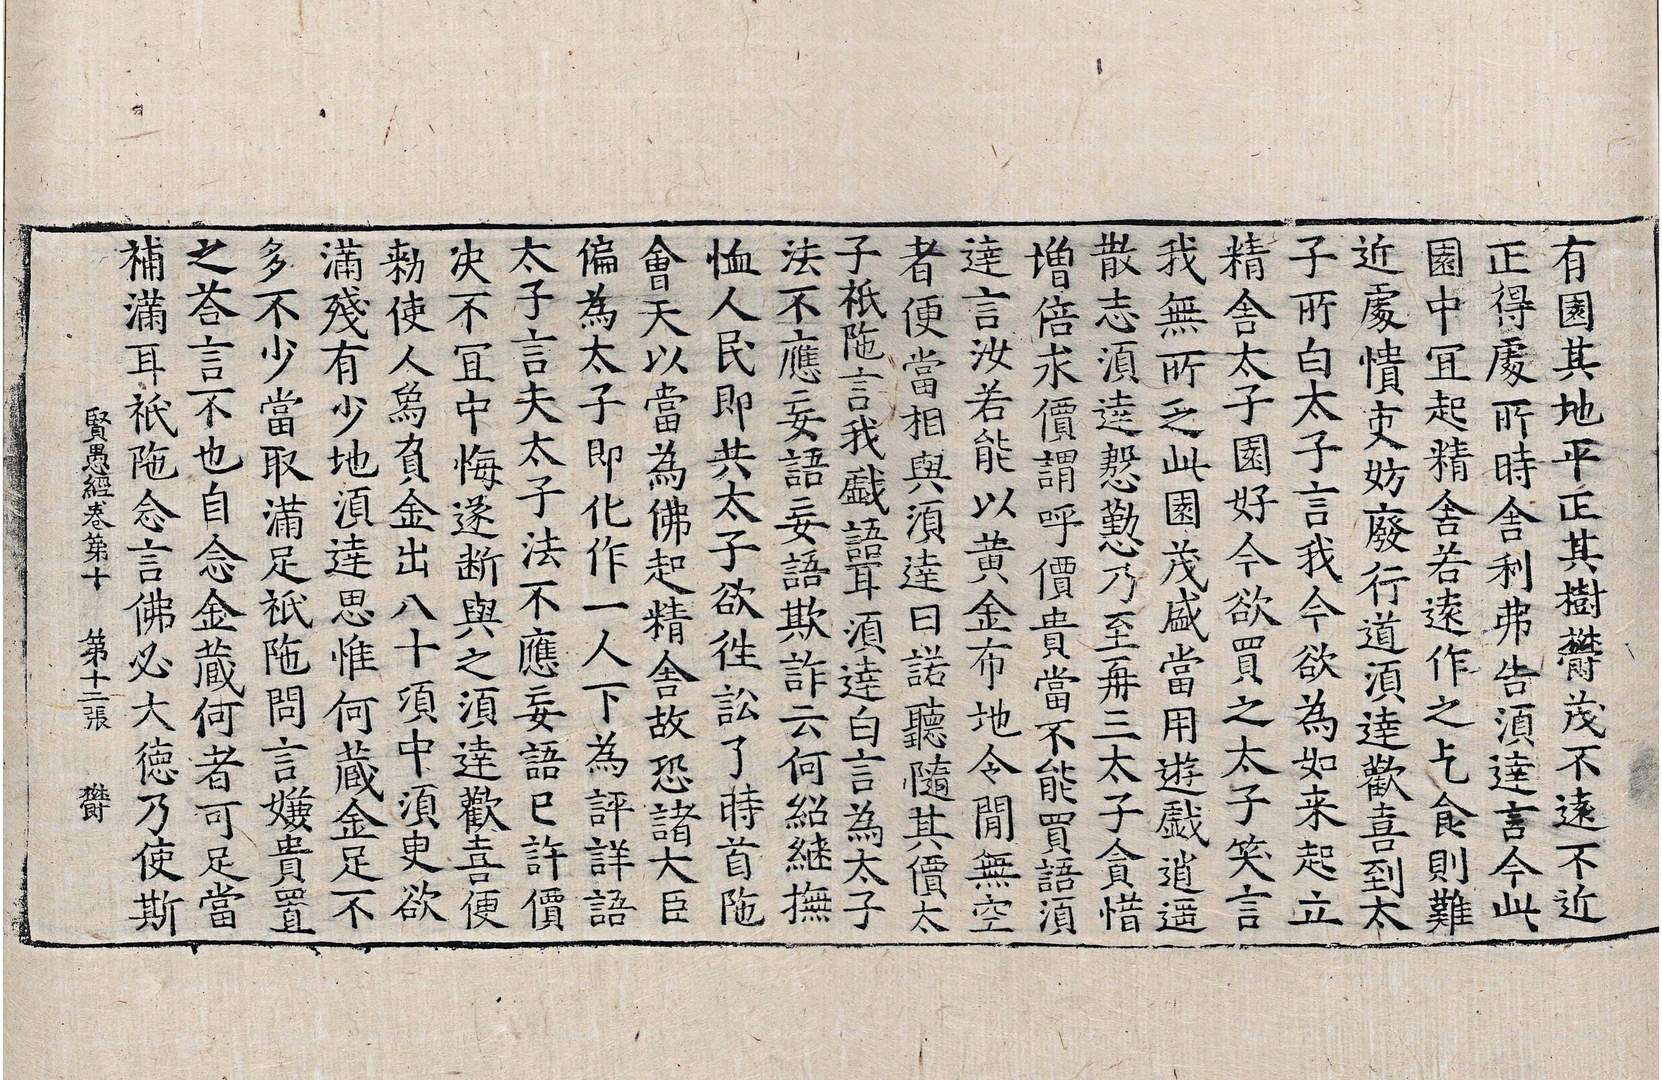 有園其地平正其樹欝茂不遠不近
正得處所時舍利弗告湏達言今此
園中冝起精舍若遠作之乞食則難
近處憒吏妨廢行道湏達歡喜到太
子所白太子言我今欲為如来起立
精舍太子園好今欲買之太子笑言
我無所乏此園茂盛當用遊戲逍遥
散志湏達慇懃乃至再三太子貪惜
増倍求價謂呼價貴當不能買語湏
達言汝若能以黄金布地令閒無空
者便當相與湏達曰諾聽隨其價太
子祇陁言我戲語耳湏達白言為太子
法不應妄語妄語欺詐云何紹継撫
恤人民即共太子欲徃訟了時首陁
會天以當為佛起精舍故恐諸大臣
偏為太子即化作一人下為評詳語
太子言夫太子法不應妄語已許價
决不冝中悔遂断與之湏達歡喜便
勑使人烏負金出八十湏中湏㕝欲
滿殘有少地湏達思惟何蔵金足不
多不少當取滿足祇陁問言嫌貴置
之荅言不也自念金蔵何者可足當
補滿耳祇陁念言佛必大徳乃使斯
賢愚經卷第十　第十二張　欝